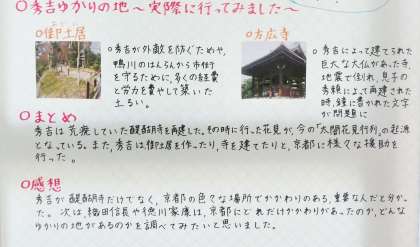 ○秀吉ゆかりの地～実際に行ってみました～
○御土居
○秀吉が外敵を防ぐためや、
鴨川のはんらんから市街
を守るために、多くの経費
と労力を費やして築いた
土るい。
○方広寺
○秀吉によって建てられた
巨大な大仏があった寺。
地震で倒れ、息子の
秀頼によって再建された
時、鐘に書かれた文字
が問題に
○まとめ
秀吉は荒廃していた醍醐寺を再建した。その時に行った花見が、今の「太閤花見行列」の起源
となっている。また、秀吉は御土居を作ったり、寺を建てたりと、京都に様々な援助
を行った。
○感想
秀吉が醍醐寺だけでなく、京都の色々な場所でかかわりのある、重要な人だと分かっ
た。次は、織田信長や徳川家康は、京都にどれだけかかわりがあったのか、どんな
ゆかりの地があるのかを調べてみたいと思いました。